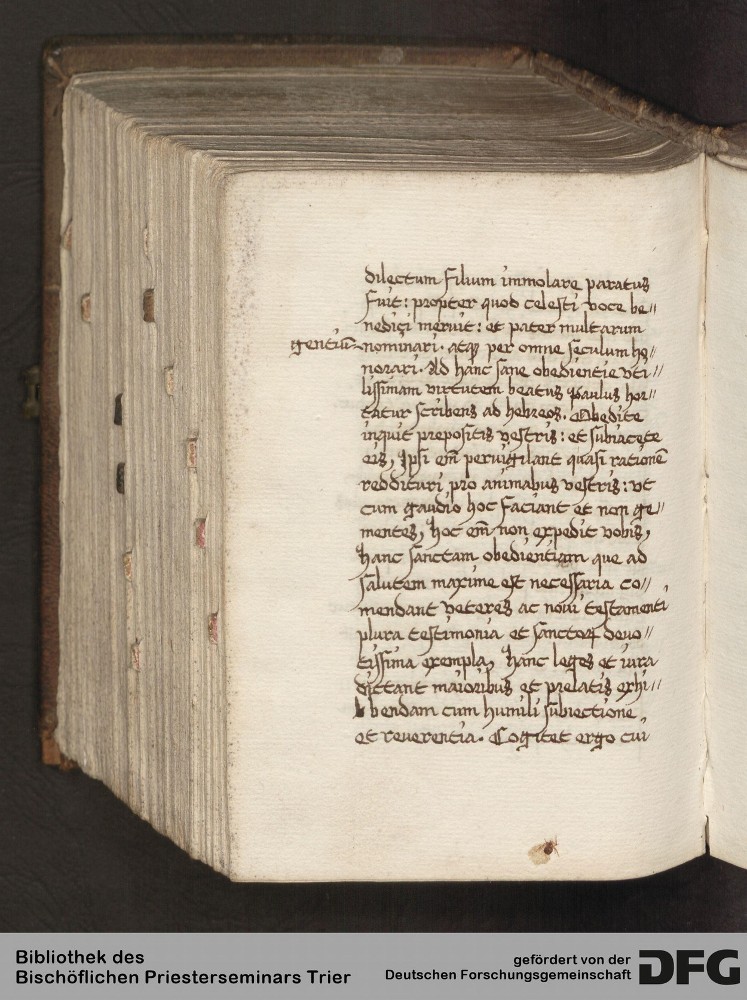 dilectum filium immolare paratus
fuit: propter quod celesti voce be//
nedici meruit: et pater multarum
gentiū nominari. atqꝫ per omne seculum ho//
norari. Ad hanc sane obedientie vti//
lissimam virtutem beatus paulus hor//
tatur scribens ad hebreos. Obedite
inquit prepositis vestris: et subiacete
eis, Ipsi em̄ peruigilant quasi rationē
reddituri pro animabus vestris: vt
cum gaudio hoc faciant et non ge//
mentes, hoc em̄ non expedit vobis,
hanc sanctam obedientiam que ad
salutem maxime est necessaria co//
mendant veteres ac noui testamenti
plura testimonia et sanctoꝝ deuo//
tissima exempla, hanc leges et iura
dictant maioribus et prelatis exhi//
bendam cum humili subiectione
et reuerentia. Cogitet ergo cui
Bibliothek des
Bischöflichen Priesterseminars Trier
gefördert von der
Deutschen Forschungsgemeinschaft
DFG